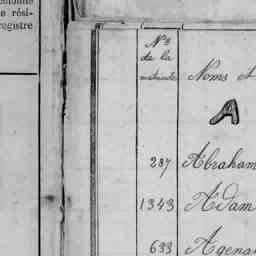 e rési-
egistre
Nº
de la
matricule
Noms
A
287 Abraham
1343 Adam
633